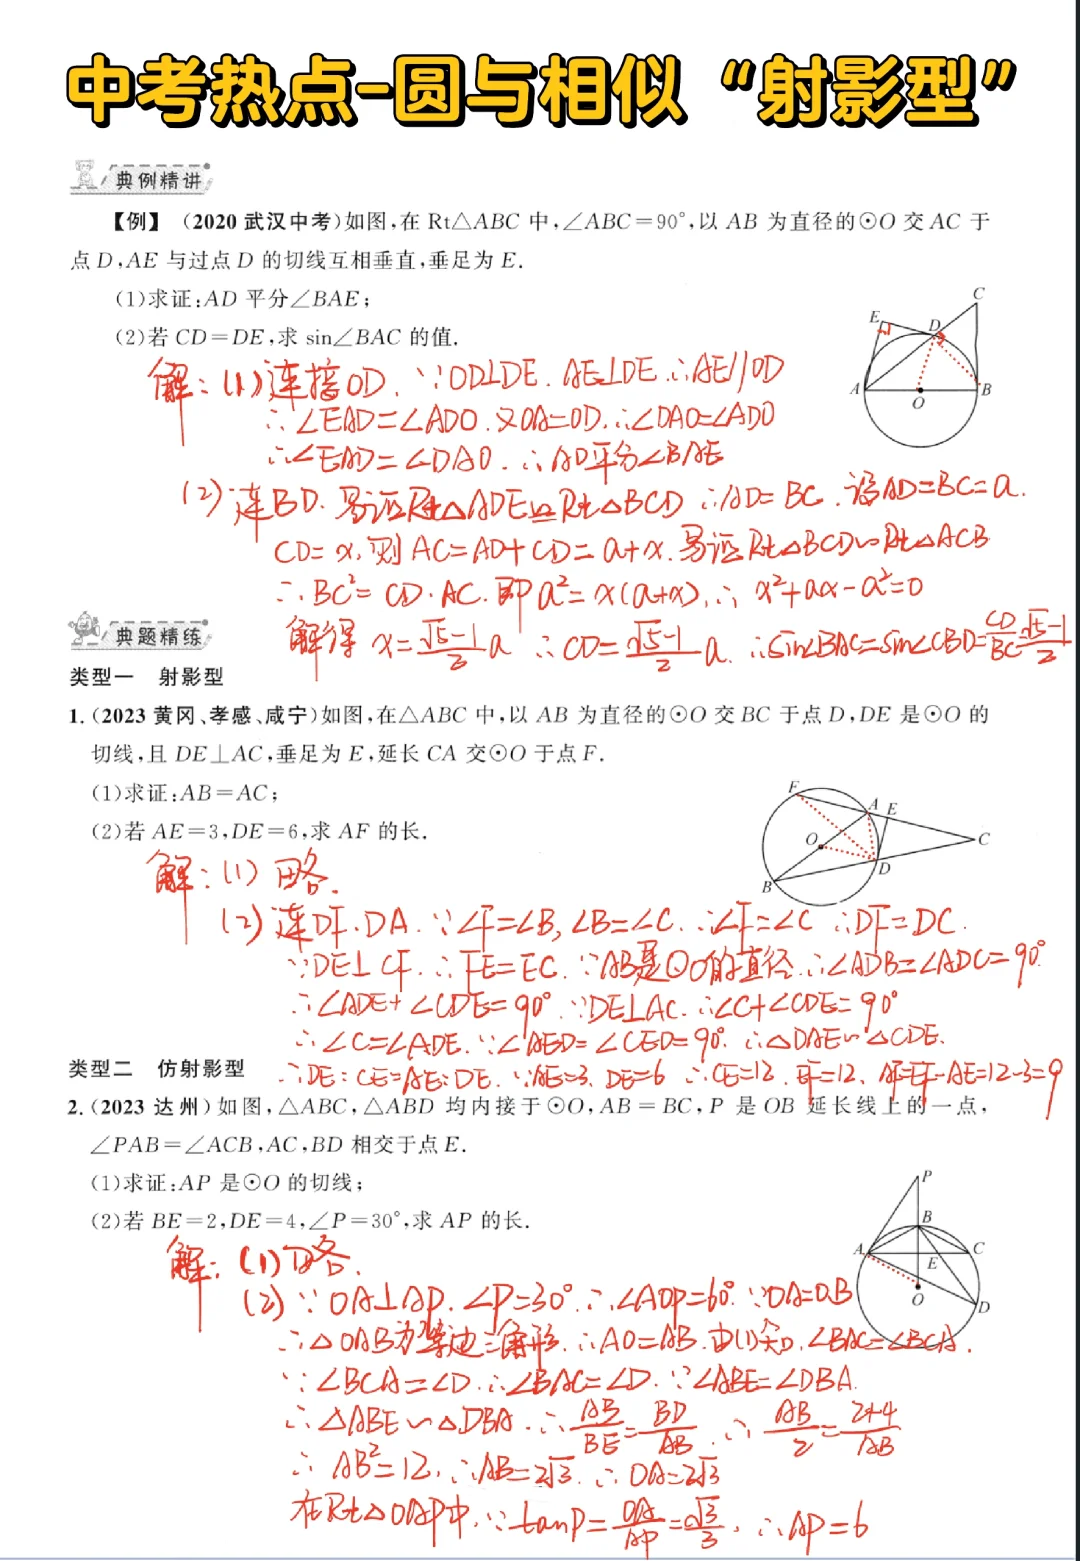 中考热点-圆与相似“射影型”
典例精讲
【例】(2020 武汉中考)如图,在 Rt△ABC 中,∠ABC=90°,以 AB 为直径的⊙O 交 AC 于
点 D,AE 与过点 D 的切线互相垂直,垂足为 E.
(1)求证:AD 平分∠BAE;
(2)若 CD=DE,求 sin∠BAC 的值.
C
E
D
A
B
O
解:(1)连接OD.∵OD⊥DE.AE⊥DE.∴AE//OD
∴∠EAD=∠ADO.又OA=OD.∴∠DAO=∠ADO
∴∠EAD=∠DAO.∴AD平分∠BAE
(2)连BD.易证Rt△ADE≌Rt△BCD ∴AD=BC.设AD=BC=a.
CD=x,则AC=AD+CD=a+x.易证Rt△BCD∽Rt△ACB
∴BC²=CD·AC.即a²=x(a+x),∴x²+ax-a²=0
典题精练
解得x=(√5-1)/2 a ∴CD=(√5-1)/2 a.∴sin∠BAC=sin∠CBD=CD/BC=(√5-1)/2
类型一 射影型
1.(2023 黄冈、孝感、咸宁)如图,在△ABC 中,以 AB 为直径的⊙O 交 BC 于点 D,DE 是⊙O 的
切线,且 DE⊥AC,垂足为 E,延长 CA 交⊙O 于点 F.
(1)求证:AB=AC;
(2)若 AE=3,DE=6,求 AF 的长.
F
A E
O
C
D
B
解:(1)略.
(2)连DF.DA.∵∠F=∠B,∠B=∠C.∴∠F=∠C ∴DF=DC.
∵DE⊥CF.∴FE=EC.∵AB是⊙O的直径.∴∠ADB=∠ADC=90°.
∴∠ADE+∠CDE=90° ∵DE⊥AC.∴∠C+∠CDE=90°
∴∠C=∠ADE.∵∠AED=∠CED=90°.∴△DAE∽△CDE.
类型二 仿射影型
∴DE:CE=AE:DE.∵AE=3.DE=6 ∴CE=12.EF=12.AF=EF-AE=12-3=9
2.(2023 达州)如图,△ABC,△ABD 均内接于⊙O,AB=BC,P 是 OB 延长线上的一点,
∠PAB=∠ACB,AC,BD 相交于点 E.
(1)求证:AP 是⊙O 的切线;
(2)若 BE=2,DE=4,∠P=30°,求 AP 的长.
P
B
A
C
E
O
D
解:(1)略.
(2)∵OA⊥AP.∠P=30°.∴∠AOP=60°.∵OA=OB
∴△OAB为等边三角形.∴AO=AB.由(1)知.∠BAC=∠BCA.
∵∠BCA=∠D.∴∠BAC=∠D.∵∠ABE=∠DBA.
∴△ABE∽△DBA.∴AB/BE=BD/AB.∴AB/2=(2+4)/AB
∴AB²=12.∴AB=2√3.∴OA=2√3
在Rt△OAP中.∵tanP=OA/AP=√3/3.∴AP=6